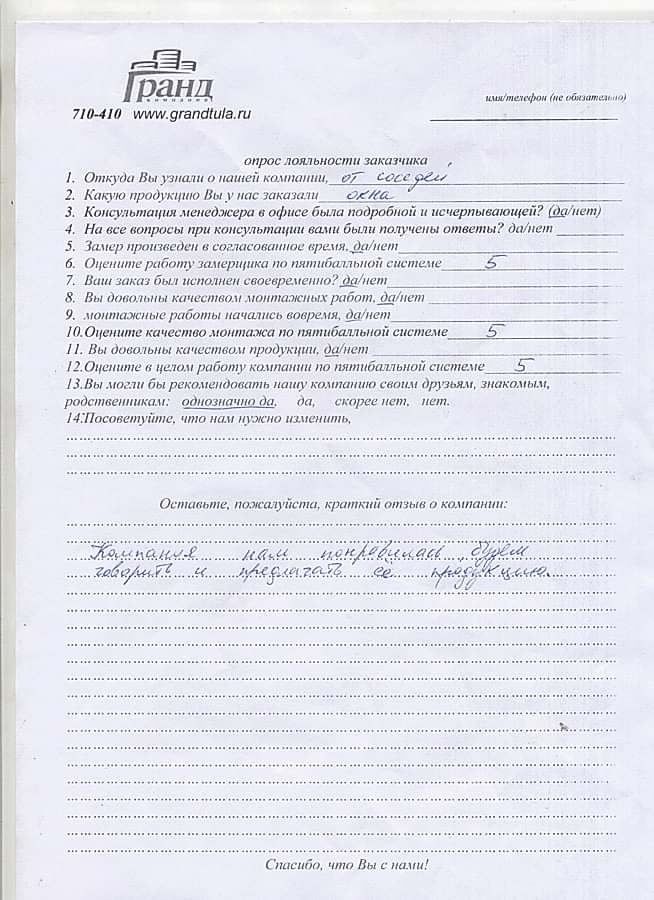 Гранд
компания
710-410 www.grandtula.ru
имя/телефон (не обязательно)
опрос лояльности заказчика
1. Откуда Вы узнали о нашей компании, от соседей
2. Какую продукцию Вы у нас заказали окна
3. Консультация менеджера в офисе была подробной и исчерпывающей? (да/нет)
4. На все вопросы при консультации вами были получены ответы? да/нет
5. Замер произведен в согласованное время, да/нет
6. Оцените работу замерщика по пятибалльной системе 5
7. Ваш заказ был исполнен своевременно? да/нет
8. Вы довольны качеством монтажных работ, да/нет
9. монтажные работы начались вовремя, да/нет
10.Оцените качество монтажа по пятибалльной системе 5
11. Вы довольны качеством продукции, да/нет
12.Оцените в целом работу компании по пятибалльной системе 5
13.Вы могли бы рекомендовать нашу компанию своим друзьям, знакомым,
родственникам: однозначно да, да, скорее нет, нет.
14.Посоветуйте, что нам нужно изменить,
Оставьте, пожалуйста, краткий отзыв о компании:
Компания нам понравилась, будем
говорить и предлагать её продукцию.
Спасибо, что Вы с нами!